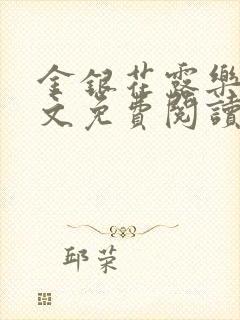 金銀花露樂
文免費閱讀
邱荣